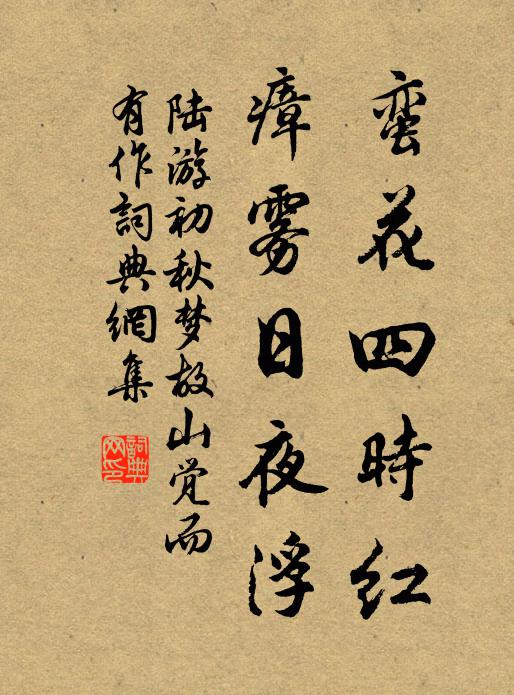 蛮花四時红
瘴雾日夜浮
陆游初秋梦故山觉而
有作詞典網集
詞典
网印